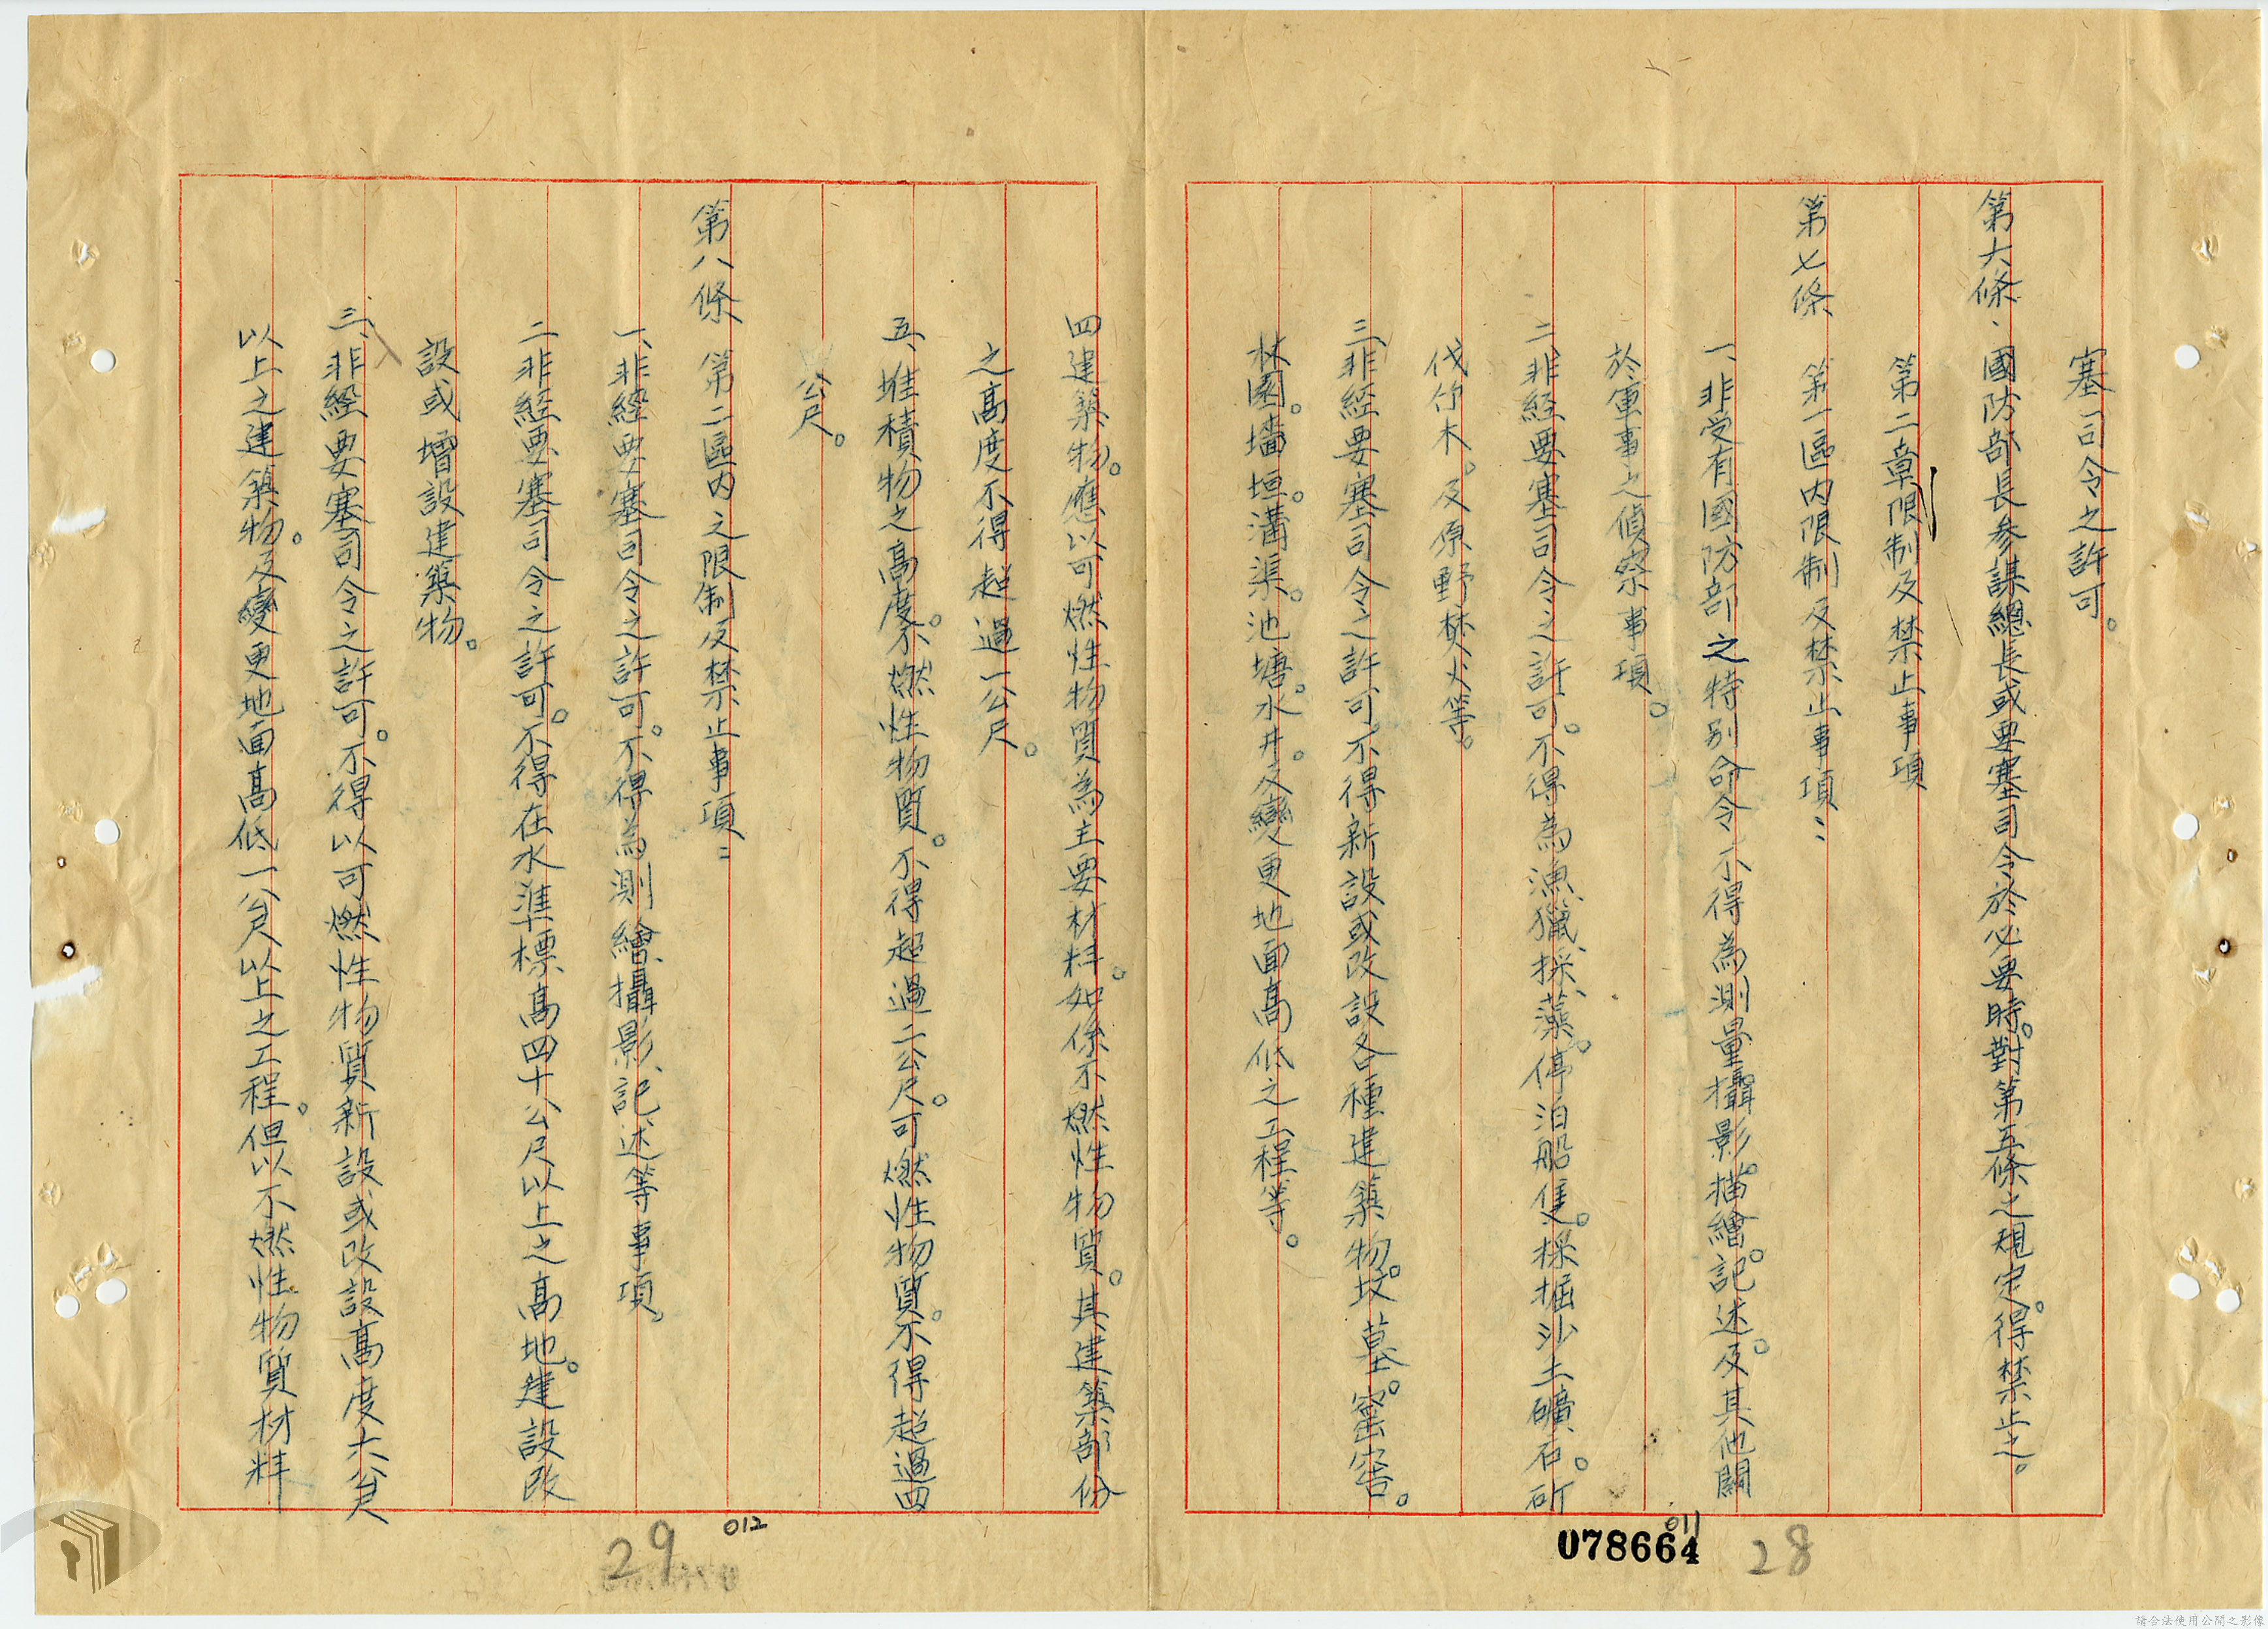 塞司令之許可。
第六條、國防部長参謀總長或要塞司令於必要時。對第五條之規定。得禁止之。
第二章限制及禁止事項
第七條　第一區內限制及禁止事項：
一、非受有國防部之特别命令不得為測量攝影。描繪。記述。及其他關
於軍事之偵察事項。
二、非経要塞司令之許可。不得為漁獵、採藻。停泊船隻。採掘沙土礦石。斫
伐竹木。及原野焚火等。
三、非経要塞司令之許可不得新設或改設各種建築物。坟墓。窰窖。
林園。墻垣。溝渠。池塘。水井。及變更地面高低之工程等。
四建築物。應以可燃性物質為主要材料。如係不燃性物質。其建築部份
之高度不得超過一公尺。
五、堆積物之高度。不燃性物質。不得超過二公尺。可燃性物質。不得超過四
公尺。
第八條　第二區內之限制及禁止事項：
一、非経要塞司令之許可。不得為測繪攝影、記述等事項。
二非経要塞司令之許可。不得在水準標高四十公尺以上之高地。建設改
設或增設建築物。
三、非經要塞司令之許可。不得以可燃性物質新設或改設高度六公尺
以上之建築物。及變更地面高低一公尺以上之工程。但以不燃性物質材料
011
078664
28
012
29
請合法使用公開之影像